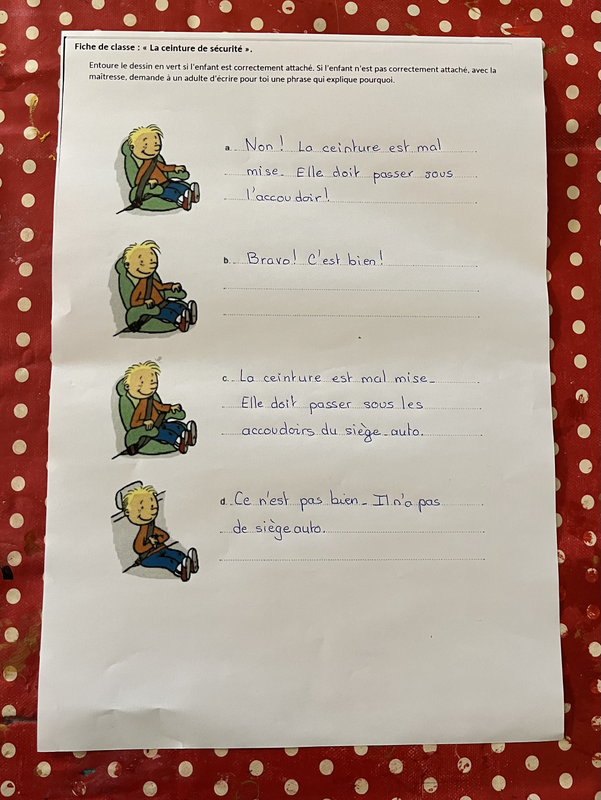 Fiche de classe : « La ceinture de sécurité ».
Entoure le dessin en vert si l'enfant est correctement attaché. Si l'enfant n'est pas correctement attaché, avec la
maitresse, demande à un adulte d'écrire pour toi une phrase qui explique pourquoi.
a. Non ! La ceinture est mal
mise. Elle doit passer sous
l'accoudoir !
b. Bravo ! C'est bien !
c. La ceinture est mal mise.
Elle doit passer sous les
accoudoirs du siège-auto.
d. Ce n'est pas bien. Il n'a pas
de siège auto.